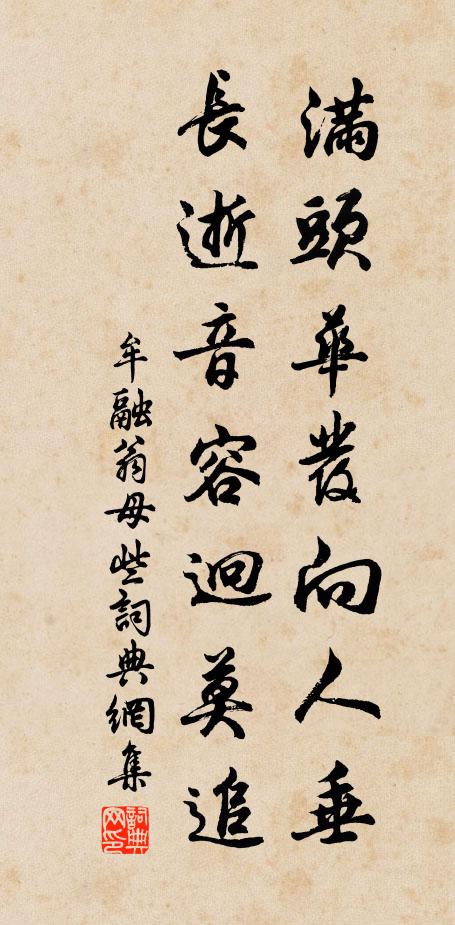 滿頭華發向人垂
長逝音容迥莫追
牟融翁母些詞典網集
詞典网印